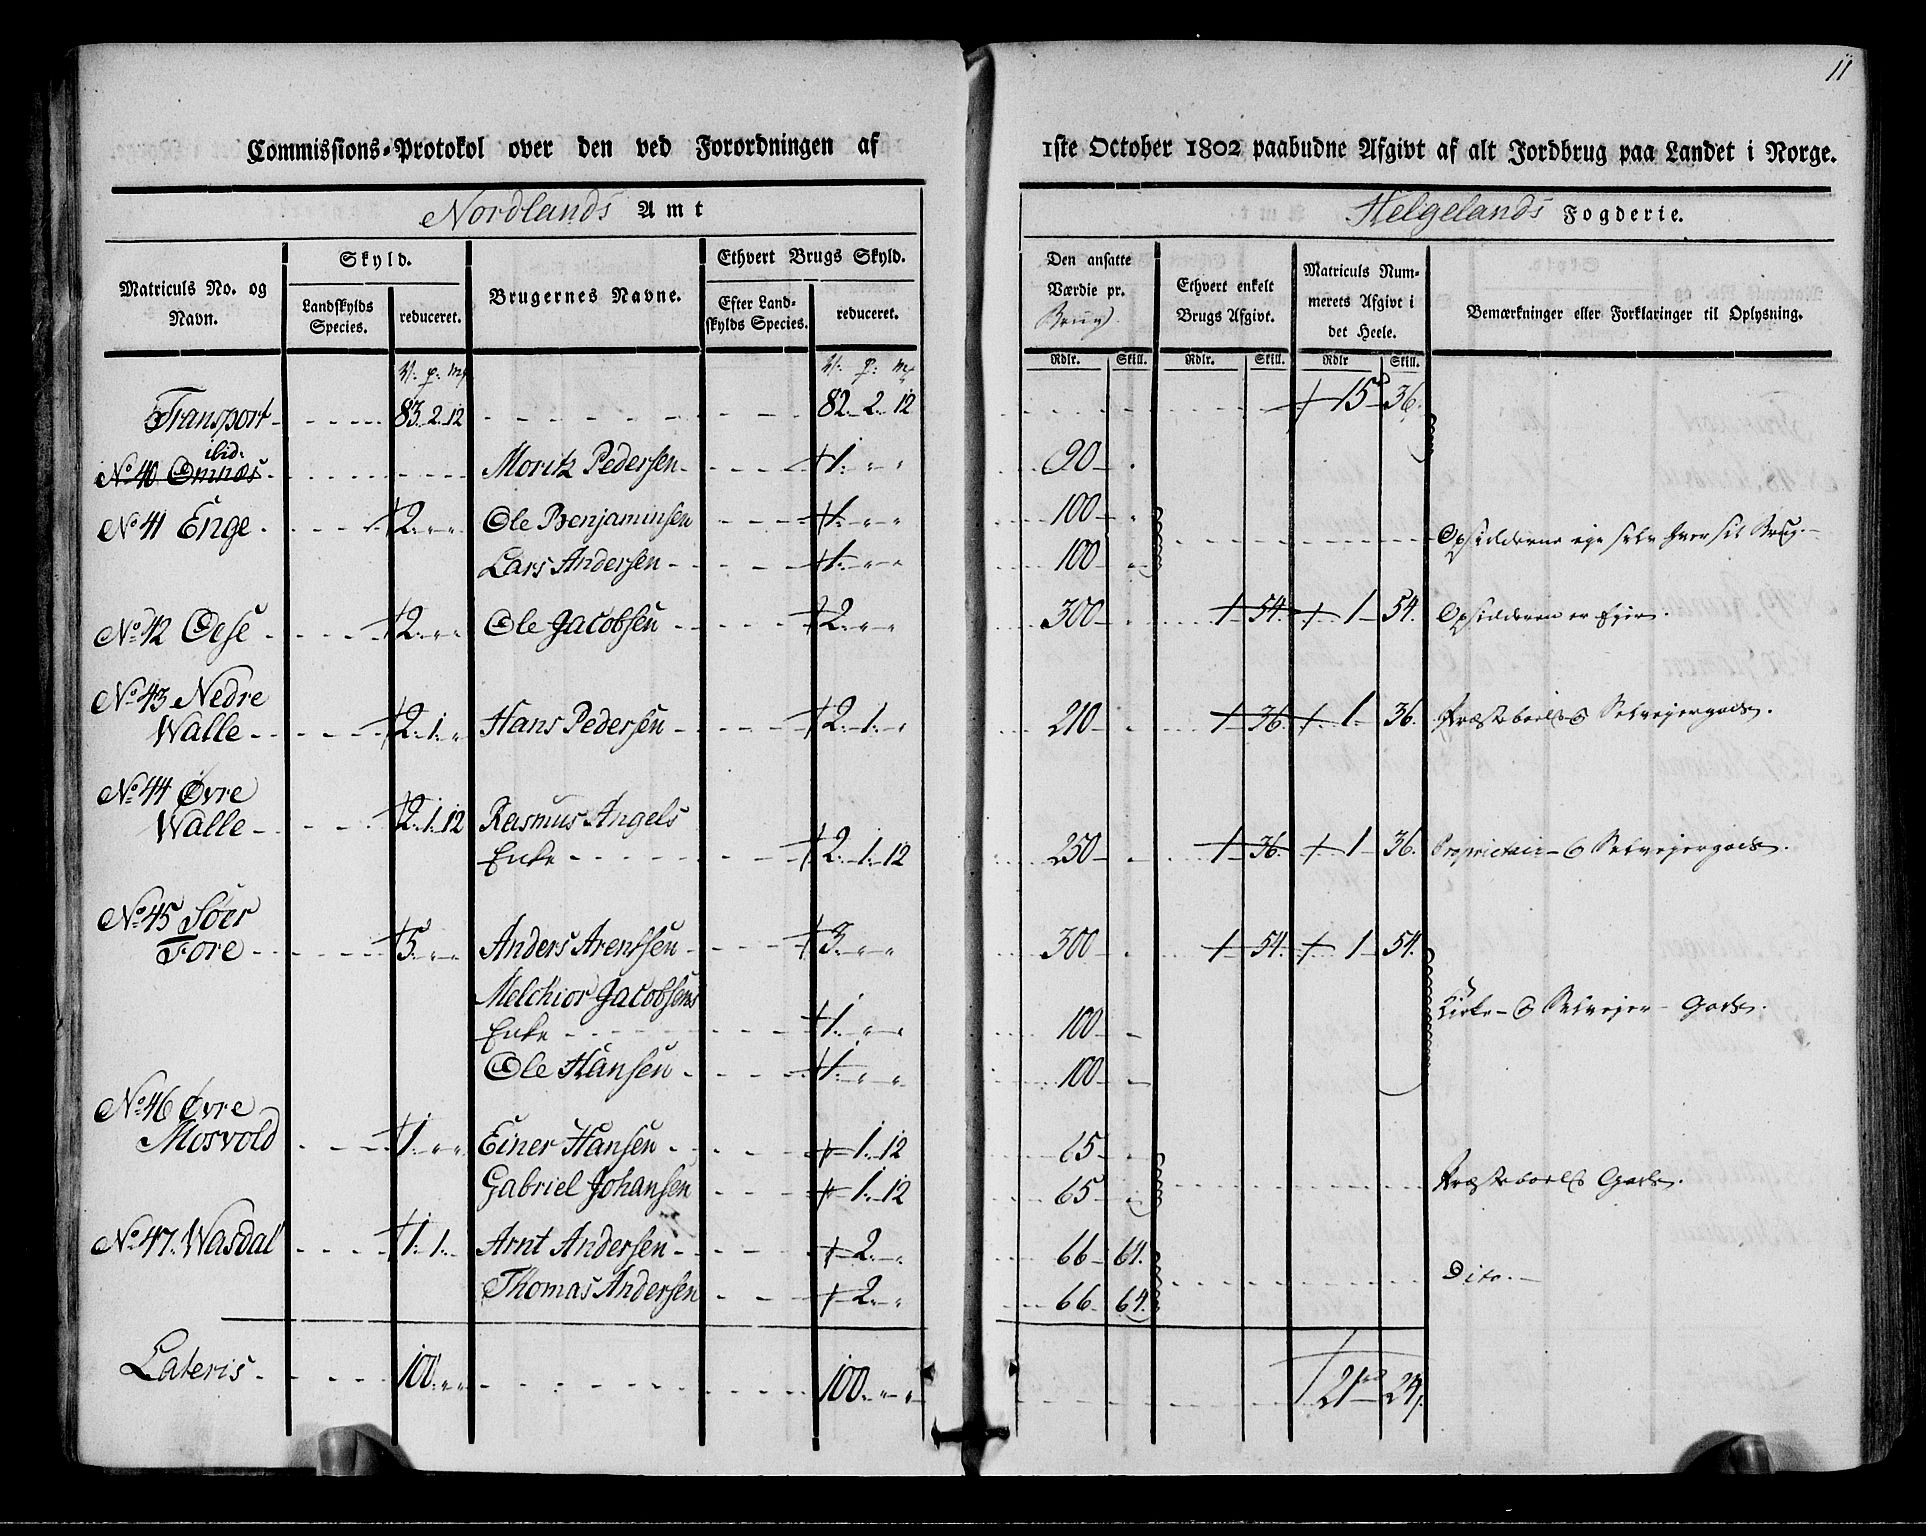 11
Commissions-Protokol over den ved Forordningen af 1ste October 1802 paabudne Afgivt af alt Jordbrug paa Landet i Norge.
Nordlands Amt Helgelands Fogderie.
Matriculs No. og Navn.
Skyld.
Landskylds Species.
reduceret.
Brugernes Navne.
Ethvert Brugs Skyld.
Efter Landskylds Species.
reduceret.
Den ansatte Værdie pr. Brug
Ethvert enkelt Brugs Afgivt.
Matriculs Nummerets Afgivt i det Heele.
Bemærkninger eller Forklaringer til Oplysning.
Rdlr. Skill. Rdlr. Skill. Rdlr Skill.
Transport 83. 2. 12 82. 2. 12 15 36.
ibid:
No 40 Omnæs Moritz Pedersen 1. 90
No 41 Enge 2. Ole Benjaminsen 1. 100
Lars Andersen 1. 100 Opsidderne eje selv hver sit Brug.
No 42 Oese 2. Ole Jacobsen 2. 300 1 54. 1 54. Opsidderen er Ejer.
No 43 Nedre
Walle 2. 1. Hans Pedersen 2. 1. 210 1 36. 1 36. Præsteboels & Selvejergods.
No 44 Øvre
Walle 2. 1. 12 Rasmus Angels
Enke 2. 1. 12 250 1 36. 1 36. Proprietair- & Selvejergods.
No 45 Söer
Fore 5. Anders Arentsen 3. 300 1 54. 1 54.
Melchior Jacobsens
Enke 1. 100 Kirke- & Selvejer-Gods.
Ole Hansen 1. 100
No 46 Øvre
Mosvold 1. Einer Hansen 1. 12 65
Gabriel Johansen 1. 12 65 Præsteboels Gods.
No 47. Wasdal 1. 1. Arnt Andersen 2. 66 64.
Thomas Andersen 2. 66 64. Dito.
Lateris 100. 100. 21 24.